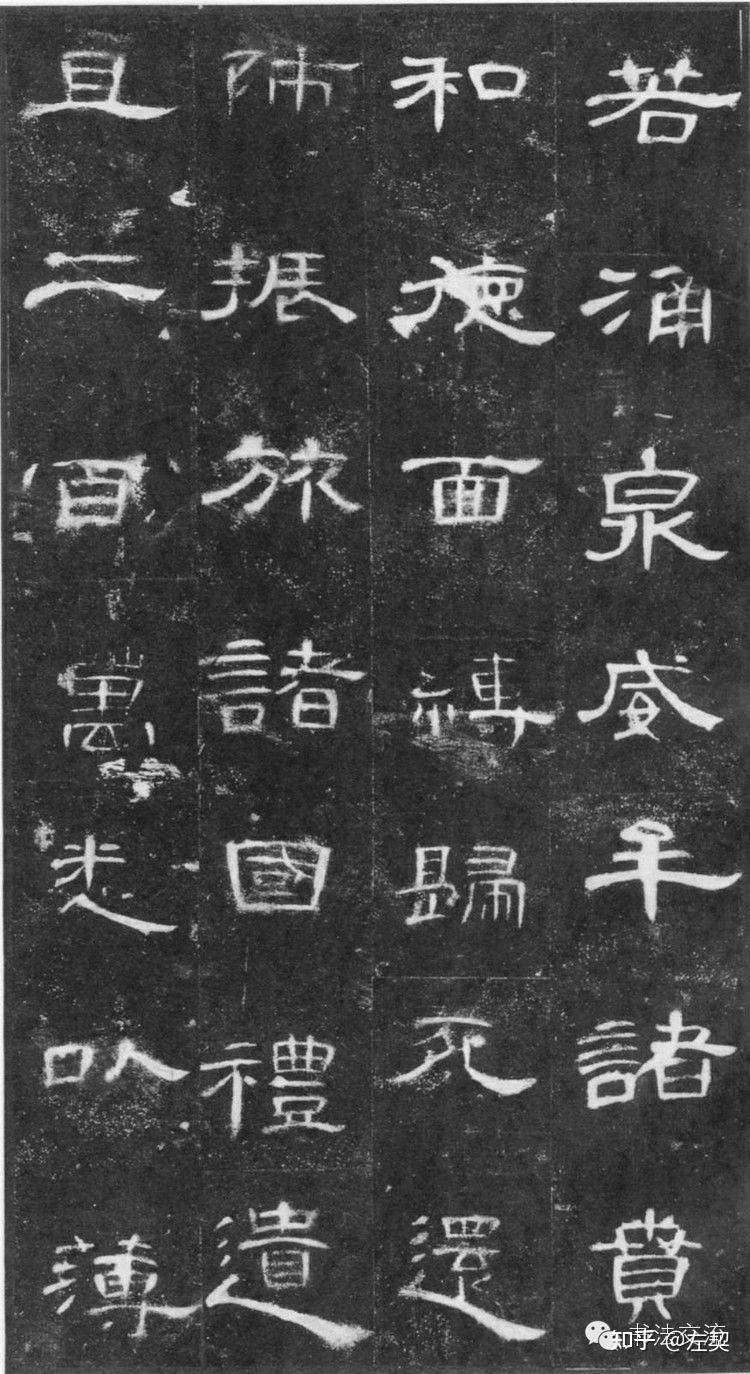 若涌泉威牟諸賁
和德面縛歸死還
師振旅諸國禮遺
且二百萬悉以薄
书法交流
知乎 @左契